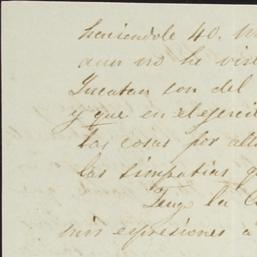 haciendole 40.
aun no he
Yucatan son del
y que en el
las cosas por alla
las simpatias
Teng la
mis expresiones a